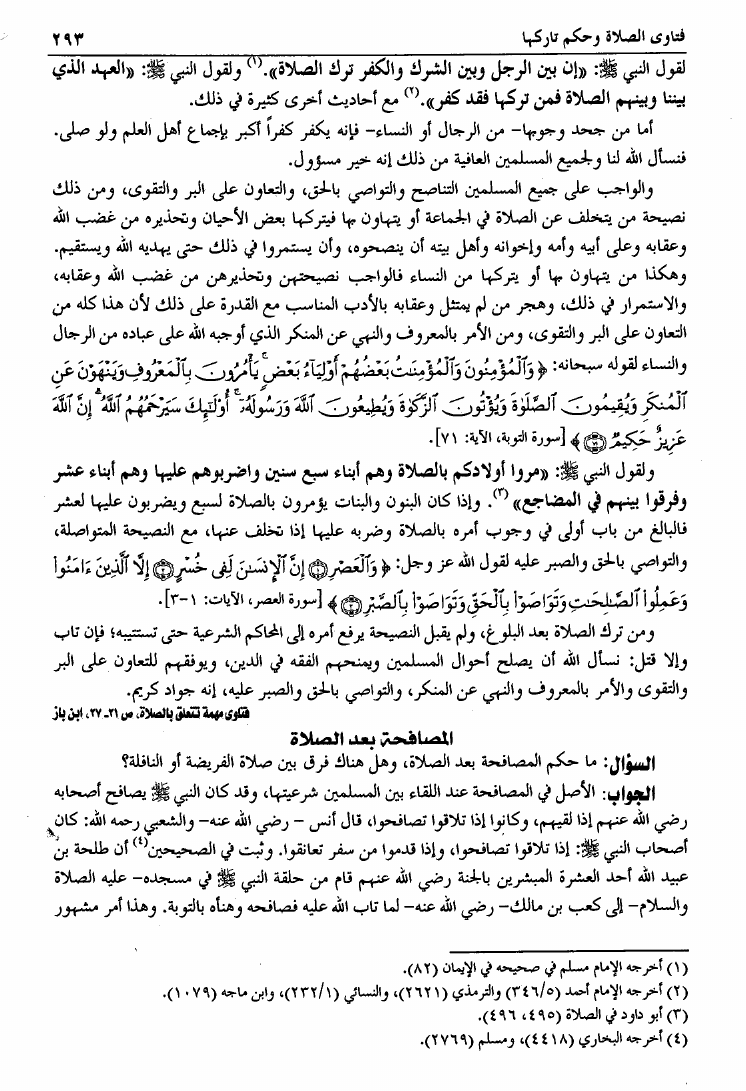 فتاوى الصلاة وحكم تاركها
٢٩٣
لقول النبي ﷺ: «إن بين الرجل وبين الشرك والكفر ترك الصلاة».(١) ولقول النبي ﷺ: «العهد الذي
بيننا وبينهم الصلاة فمن تركها فقد كفر».(٢) مع أحاديث أخرى كثيرة في ذلك.
أما من جحد وجوبها– من الرجال أو النساء– فإنه يكفر كفراً أكبر بإجماع أهل العلم ولو صلى.
فنسأل الله لنا ولجميع المسلمين العافية من ذلك إنه خير مسؤول.
والواجب على جميع المسلمين التناصح والتواصي بالحق، والتعاون على البر والتقوى، ومن ذلك
نصيحة من يتخلف عن الصلاة في الجماعة أو يتهاون بها فيتركها بعض الأحيان وتحذيره من غضب الله
وعقابه وعلى أبيه وأمه وإخوانه وأهل بيته أن ينصحوه، وأن يستمروا في ذلك حتى يهديه الله ويستقيم.
وهكذا من يتهاون بها أو يتركها من النساء فالواجب نصيحتهن وتحذيرهن من غضب الله وعقابه،
والاستمرار في ذلك، وهجر من لم يمتثل وعقابه بالأدب المناسب مع القدرة على ذلك لأن هذا كله من
التعاون على البر والتقوى، ومن الأمر بالمعروف والنهي عن المنكر الذي أوجبه الله على عباده من الرجال
والنساء لقوله سبحانه: ﴿ وَٱلْمُؤْمِنُونَ وَٱلْمُؤْمِنَٰتُ بَعْضُهُمْ أَوْلِيَآءُ بَعْضٍ ۚ يَأْمُرُونَ بِٱلْمَعْرُوفِ وَيَنْهَوْنَ عَنِ
ٱلْمُنكَرِ وَيُقِيمُونَ ٱلصَّلَوٰةَ وَيُؤْتُونَ ٱلزَّكَوٰةَ وَيُطِيعُونَ ٱللَّهَ وَرَسُولَهُۥٓ ۚ أُو۟لَٰٓئِكَ سَيَرْحَمُهُمُ ٱللَّهُ ۗ إِنَّ ٱللَّهَ
عَزِيزٌ حَكِيمٌ ۝٧١ ﴾ [سورة التوبة، الآية: ٧١].
ولقول النبي ﷺ: «مروا أولادكم بالصلاة وهم أبناء سبع سنين واضربوهم عليها وهم أبناء عشر
وفرقوا بينهم في المضاجع»(٣). وإذا كان البنون والبنات يؤمرون بالصلاة لسبع ويضربون عليها لعشر
فالبالغ من باب أولى في وجوب أمره بالصلاة وضربه عليها إذا تخلف عنها، مع النصيحة المتواصلة،
والتواصي بالحق والصبر عليه لقول الله عز وجل: ﴿ وَٱلْعَصْرِ ۝١ إِنَّ ٱلْإِنسَٰنَ لَفِى خُسْرٍ ۝٢ إِلَّا ٱلَّذِينَ ءَامَنُوا۟
وَعَمِلُوا۟ ٱلصَّٰلِحَٰتِ وَتَوَاصَوْا۟ بِٱلْحَقِّ وَتَوَاصَوْا۟ بِٱلصَّبْرِ ۝٣ ﴾ [سورة العصر، الآيات: ١–٣].
ومن ترك الصلاة بعد البلوغ، ولم يقبل النصيحة يرفع أمره إلى المحاكم الشرعية حتى تستتيبه؛ فإن تاب
وإلا قتل: نسأل الله أن يصلح أحوال المسلمين ويمنحهم الفقه في الدين، ويوفقهم للتعاون على البر
والتقوى والأمر بالمعروف والنهي عن المنكر، والتواصي بالحق والصبر عليه، إنه جواد كريم.
فتاوى مهمة تتعلق بالصلاة، ص ٢١–٢٧، ابن باز
المصافحة بعد الصلاة
السؤال: ما حكم المصافحة بعد الصلاة، وهل هناك فرق بين صلاة الفريضة أو النافلة؟
الجواب: الأصل في المصافحة عند اللقاء بين المسلمين شرعيتها، وقد كان النبي ﷺ يصافح أصحابه
رضي الله عنهم إذا لقيهم، وكانوا إذا تلاقوا تصافحوا، قال أنس – رضي الله عنه– والشعبي رحمه الله: كان
أصحاب النبي ﷺ: إذا تلاقوا تصافحوا، وإذا قدموا من سفر تعانقوا. وثبت في الصحيحين(٤) أن طلحة بن
عبيد الله أحد العشرة المبشرين بالجنة رضي الله عنهم قام من حلقة النبي ﷺ في مسجده– عليه الصلاة
والسلام– إلى كعب بن مالك– رضي الله عنه– لما تاب الله عليه فصافحه وهنأه بالتوبة. وهذا أمر مشهور
(١) أخرجه الإمام مسلم في صحيحه في الإيمان (٨٢).
(٢) أخرجه الإمام أحمد (٣٤٦/٥) والترمذي (٢٦٢١)، والنسائي (٢٣٢/١)، وابن ماجه (١٠٧٩).
(٣) أبو داود في الصلاة (٤٩٥، ٤٩٦).
(٤) أخرجه البخاري (٤٤١٨)، ومسلم (٢٧٦٩).